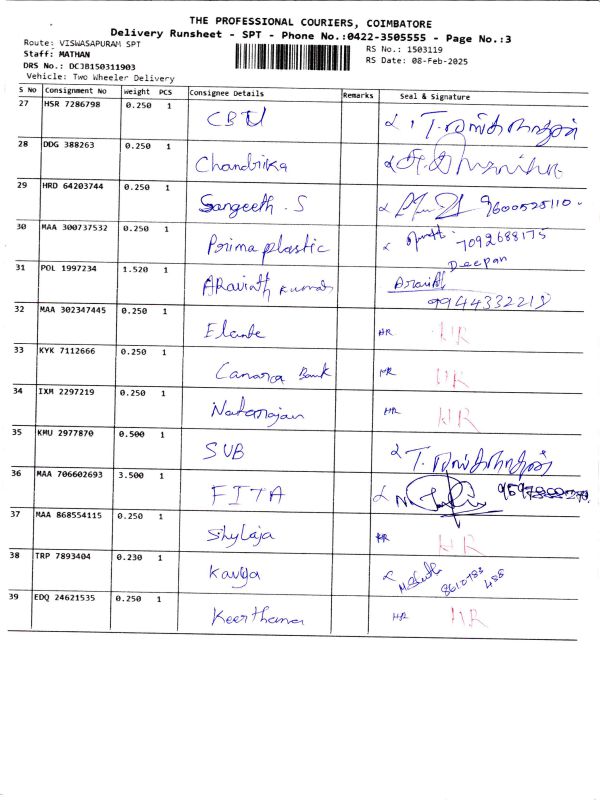 THE PROFESSIONAL COURIERS, COIMBATORE
Delivery Runsheet - SPT - Phone No.:0422-3505555 - Page No.:3
Route: VISWASAPURAM SPT
RS No.: 1503119
Staff: MATHAN
RS Date: 08-Feb-2025
DRS No.: DCJB150311903
Vehicle: Two Wheeler Delivery
S No Consignment No Weight PCS Consignee Details Remarks Seal & Signature
27 HSR 7286798 0.250 1 CBU
28 DDG 388263 0.250 1 Chandrika
29 HRD 64203744 0.250 1 Sangeeth . S 9600525110
30 MAA 300737532 0.250 1 Prima plastic 7092688175
Deepan
31 POL 1997234 1.520 1 ARavinth Kumar Aravinth
9944332219
32 MAA 302347445 0.250 1 NR NR
33 KYK 7112666 0.250 1 Canara Bank NR NR
34 IXM 2297219 0.250 1 Natarajan NR NR
35 KMU 2977870 0.500 1 SUB
36 MAA 706602693 3.500 1 FITA
37 MAA 868554115 0.250 1 Shylaja NR NR
38 TRP 7893404 0.230 1 Kavya 8610783
488
39 EDQ 24621535 0.250 1 Keerthana NR NR